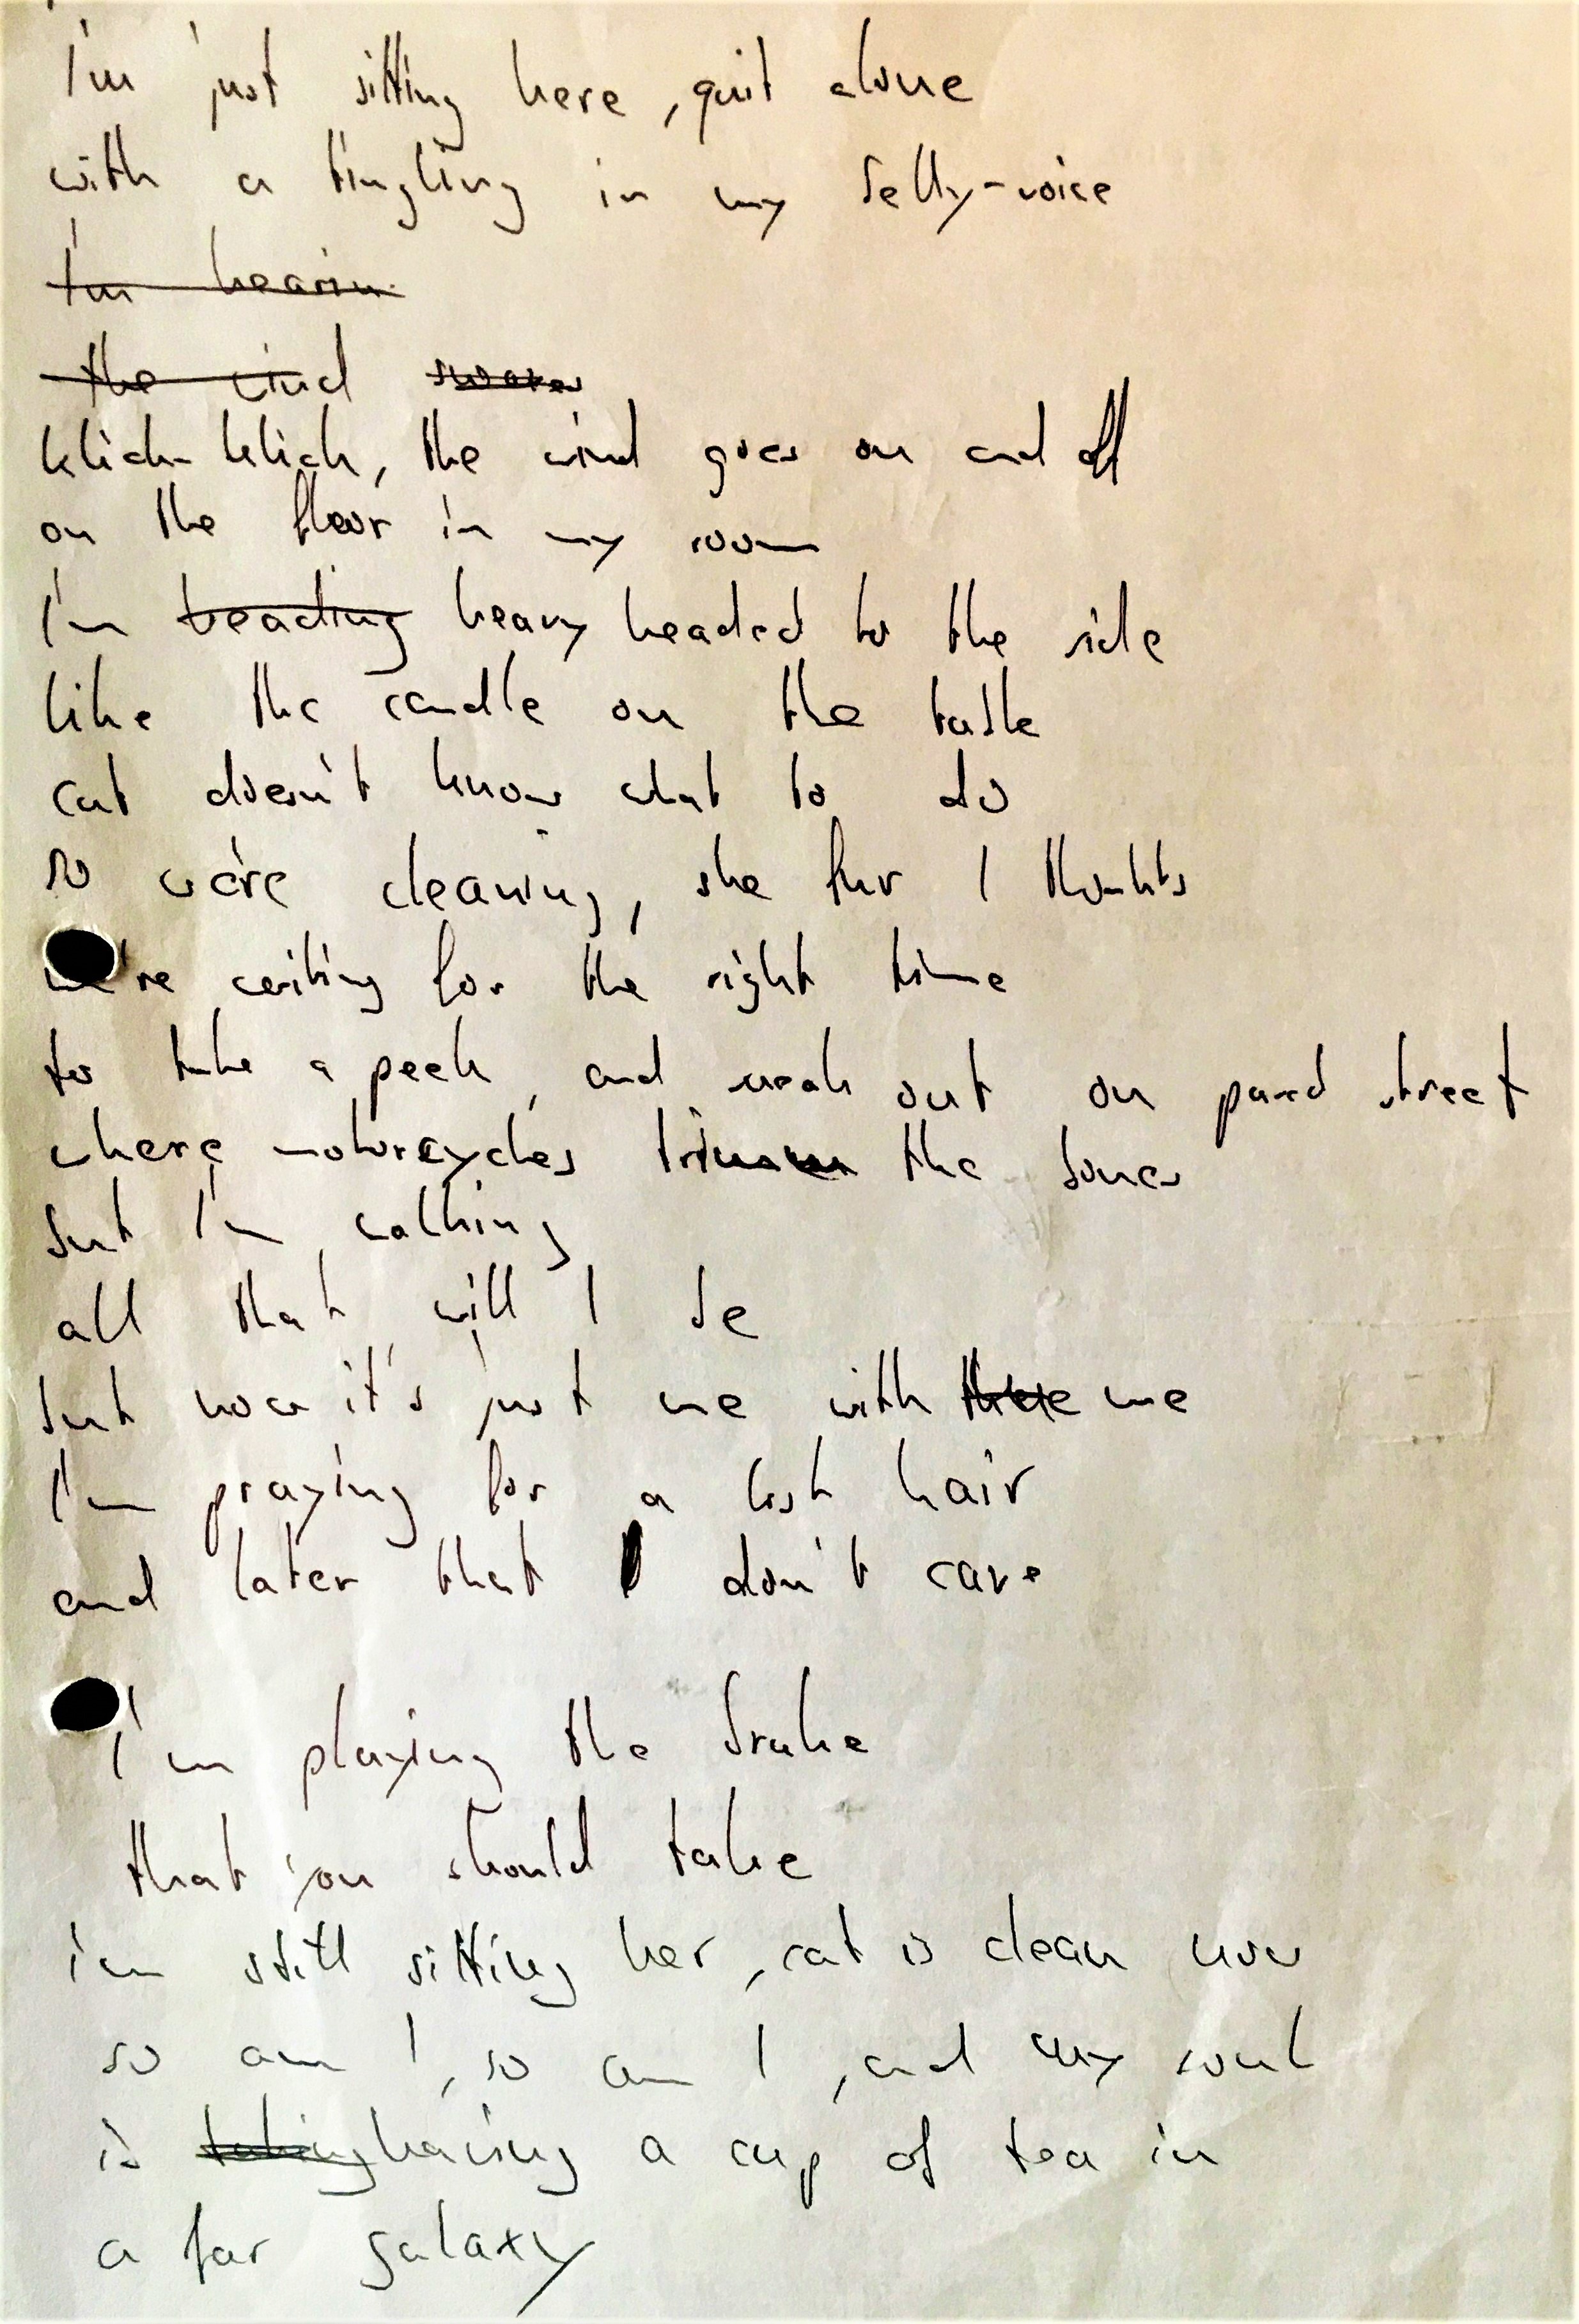 I'm just sitting here, quit alone
with a tingling in my belly-voice
I'm hearin
the wind
klick-klick, the wind goes on and off
on the floor in my room
I'm heading heavy headed to the side
like the candle on the table
cat doesn't know what to do
so we're cleaning, she fur I thoughts
we're waiting for the right time
to take a peek, and sneak out on paved street
where motorcycles the bones
but I'm walking
all that will I be
but now it's just me with me
I'm praying for a lost hair
and later that I don't care
I'm playing the brake
that you should take
i'm still sitting her, cat is clean now
so am I, so am I, and my soul
is taking having a cup of tea in
a far galaxy